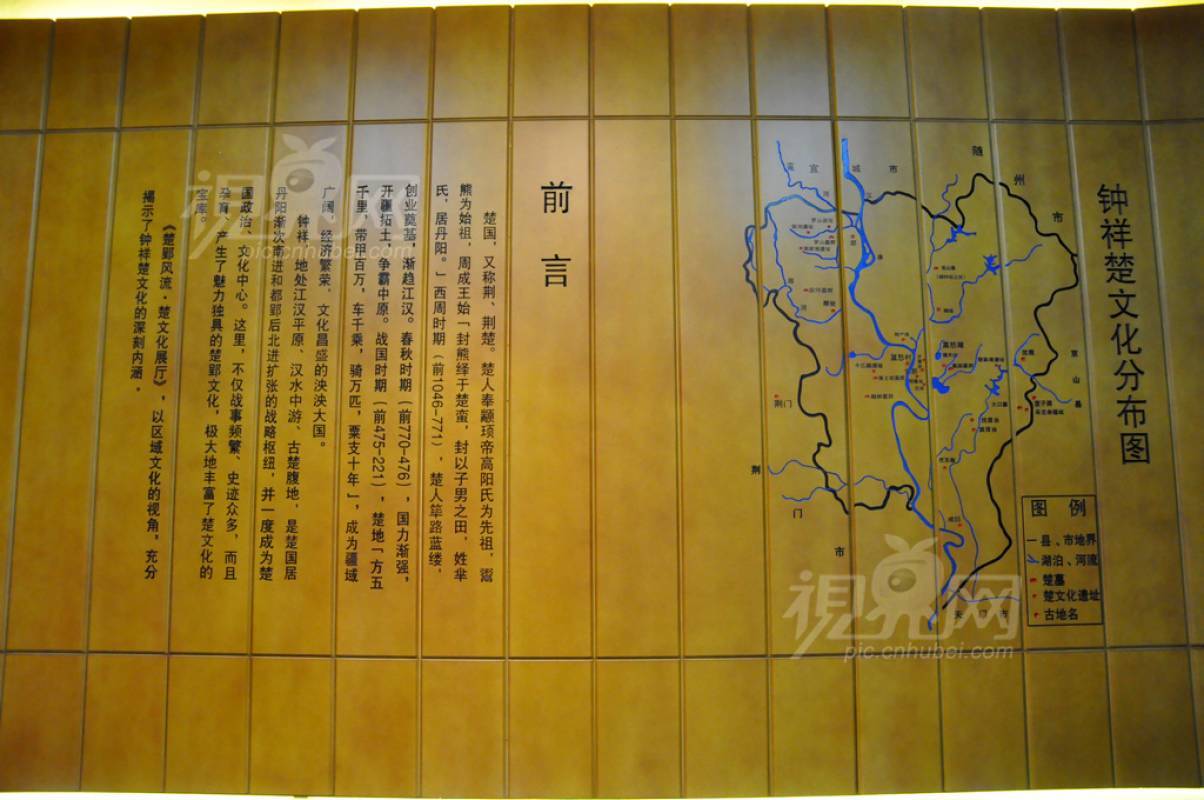 钟祥楚文化分布图
随
州
市
宜
城
市
京
山
县
荆门
荆
门
市
图例
县、市地界
湖泊、河流
楚墓
楚文化遗址
古地名
前言
楚国，又称荆、荆楚。楚人奉颛顼帝高阳氏为先祖，鬻
熊为始祖，周成王始「封熊绎于楚蛮，封以子男之田，姓芈
氏，居丹阳。」西周时期（前1046-771），楚人筚路蓝缕，
创业奠基，渐趋江汉。春秋时期（前770-476），国力渐强，
开疆拓土，争霸中原。战国时期（前475-221），楚地「方五
千里，带甲百万，车千乘，骑万匹，粟支十年」，成为疆域
广阔、经济繁荣、文化昌盛的泱泱大国。
钟祥，地处江汉平原、汉水中游、古楚腹地，是楚国居
丹阳渐次南进和都郢后北进扩张的战略枢纽，并一度成为楚
国政治、文化中心。这里，不仅战事频繁、史迹众多，而且
孕育、产生了魅力独具的楚郢文化，极大地丰富了楚文化的
宝库。
《楚郢风流·楚文化展厅》，以区域文化的视角，充分
揭示了钟祥楚文化的深刻内涵。
视界网
pic.cnhubei.com
视界网
pic.cnhubei.com